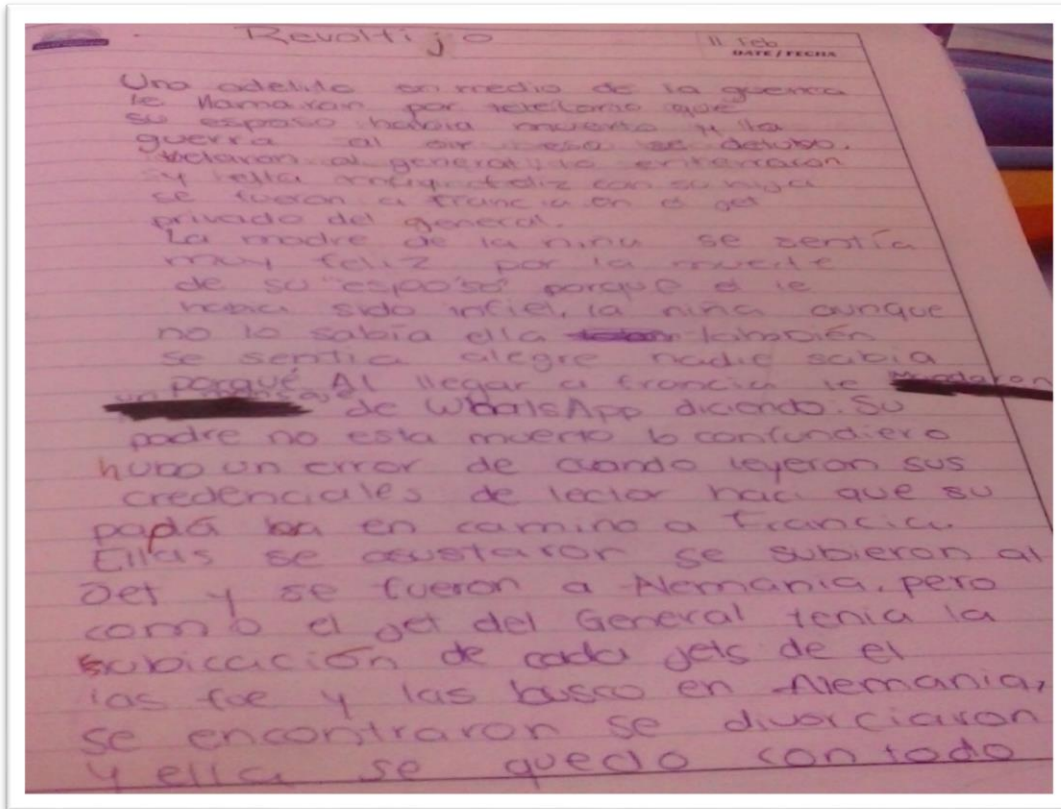 Revoltijo
11 Feb
DATE / FECHA
Una adelita en medio de la guerra
le llamaron por telefono que
su esposo había muerto y la
guerra al oir eso se detubo.
al general, lo enterraron
y ella muy feliz con su hija
se fueron a francia en el jet
privado del general.
La madre de la niña se sentía
muy feliz por la muerte
de su "esposo" porque el le
habia sido infiel, la niña aunque
no lo sabía ella también
se sentia alegre nadie sabia
porqué. Al llegar a francia le Mandaron
de WhatsApp diciendo: Su
padre no esta muerto lo confundiero
hubo un error de cuando leyeron sus
credenciales de lector que su
papá en camino a francia.
Ellas se asustaron se subieron al
Jet y se fueron a Alemania, pero
como el jet del General tenia la
ubicación de cada jets de el
las fue y las busco en Alemania,
se encontraron se divorciaron
y ella se quedo con todo